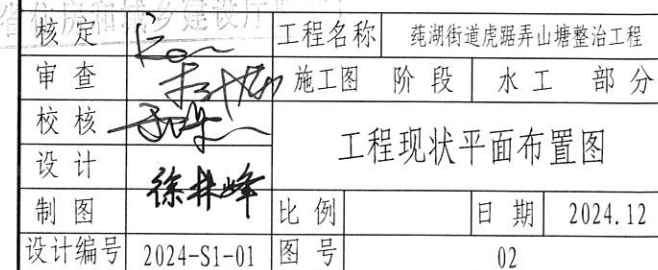 省住房和城乡建设厅
核定 工程名称 莼湖街道虎踞弄山塘整治工程
审查 施工图 阶段 水工 部分
校核
设计 工程现状平面布置图
徐井峰
制图 比例 日期 2024.12
设计编号 2024-S1-01 图号 02